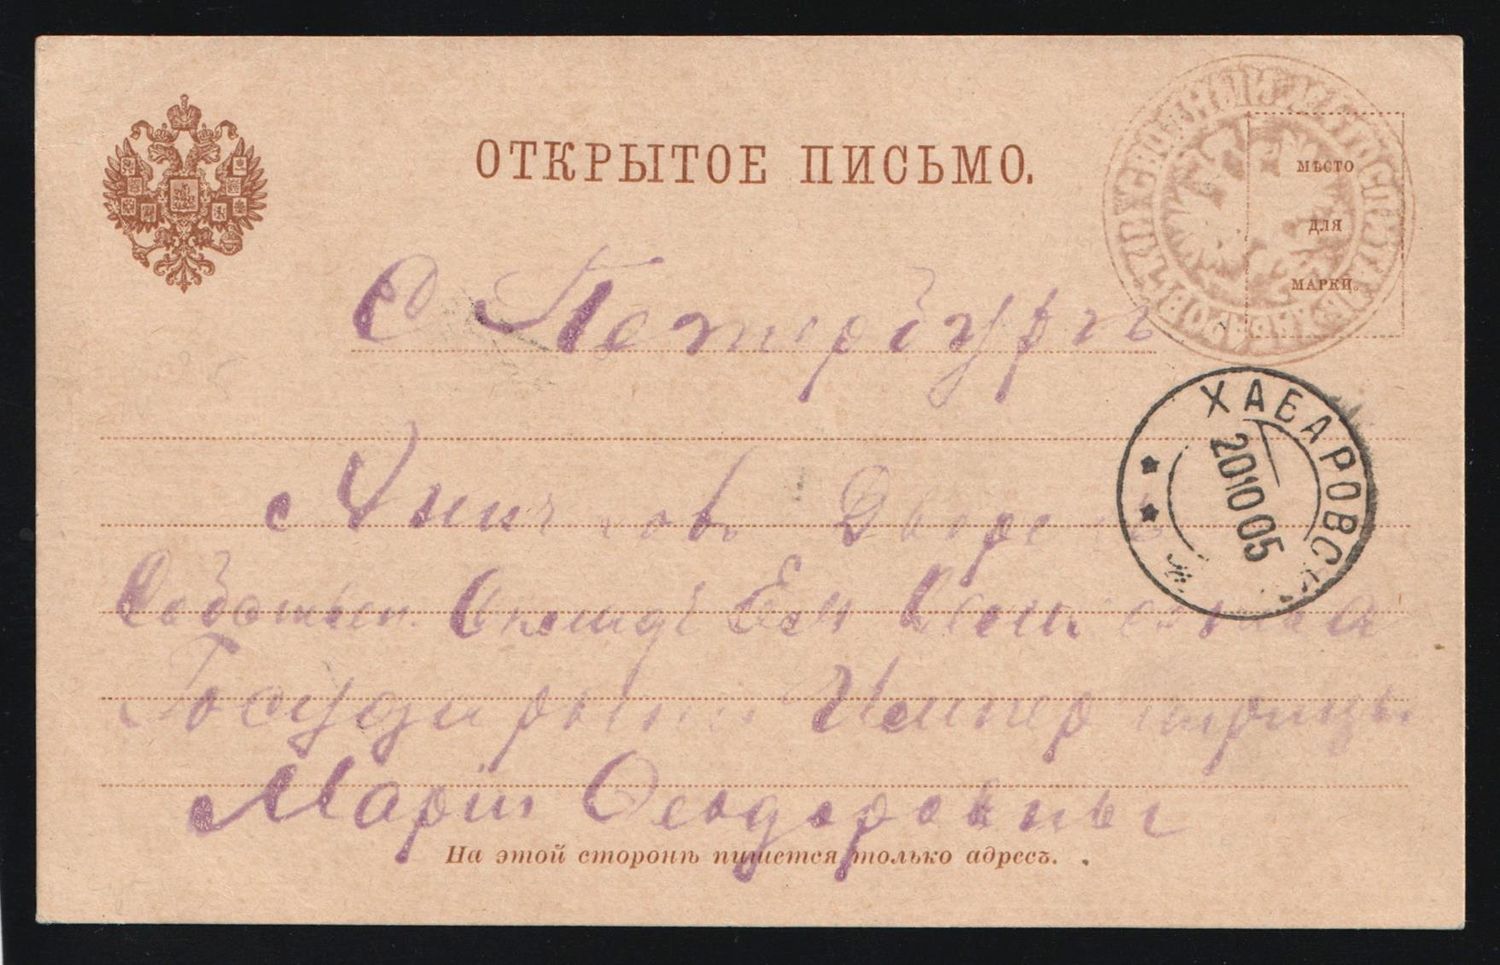 ОТКРЫТОЕ ПИСЬМО.
МѢСТО
ДЛЯ
МАРКИ.
С Петербургъ
ХАБАРОВСК
20 10 05
Аничковъ Дворецъ
Собствен. Складъ Ея Величества
Государыни Императрицы
Маріи Ѳеодоровны
На этой сторонѣ пишется только адресъ.